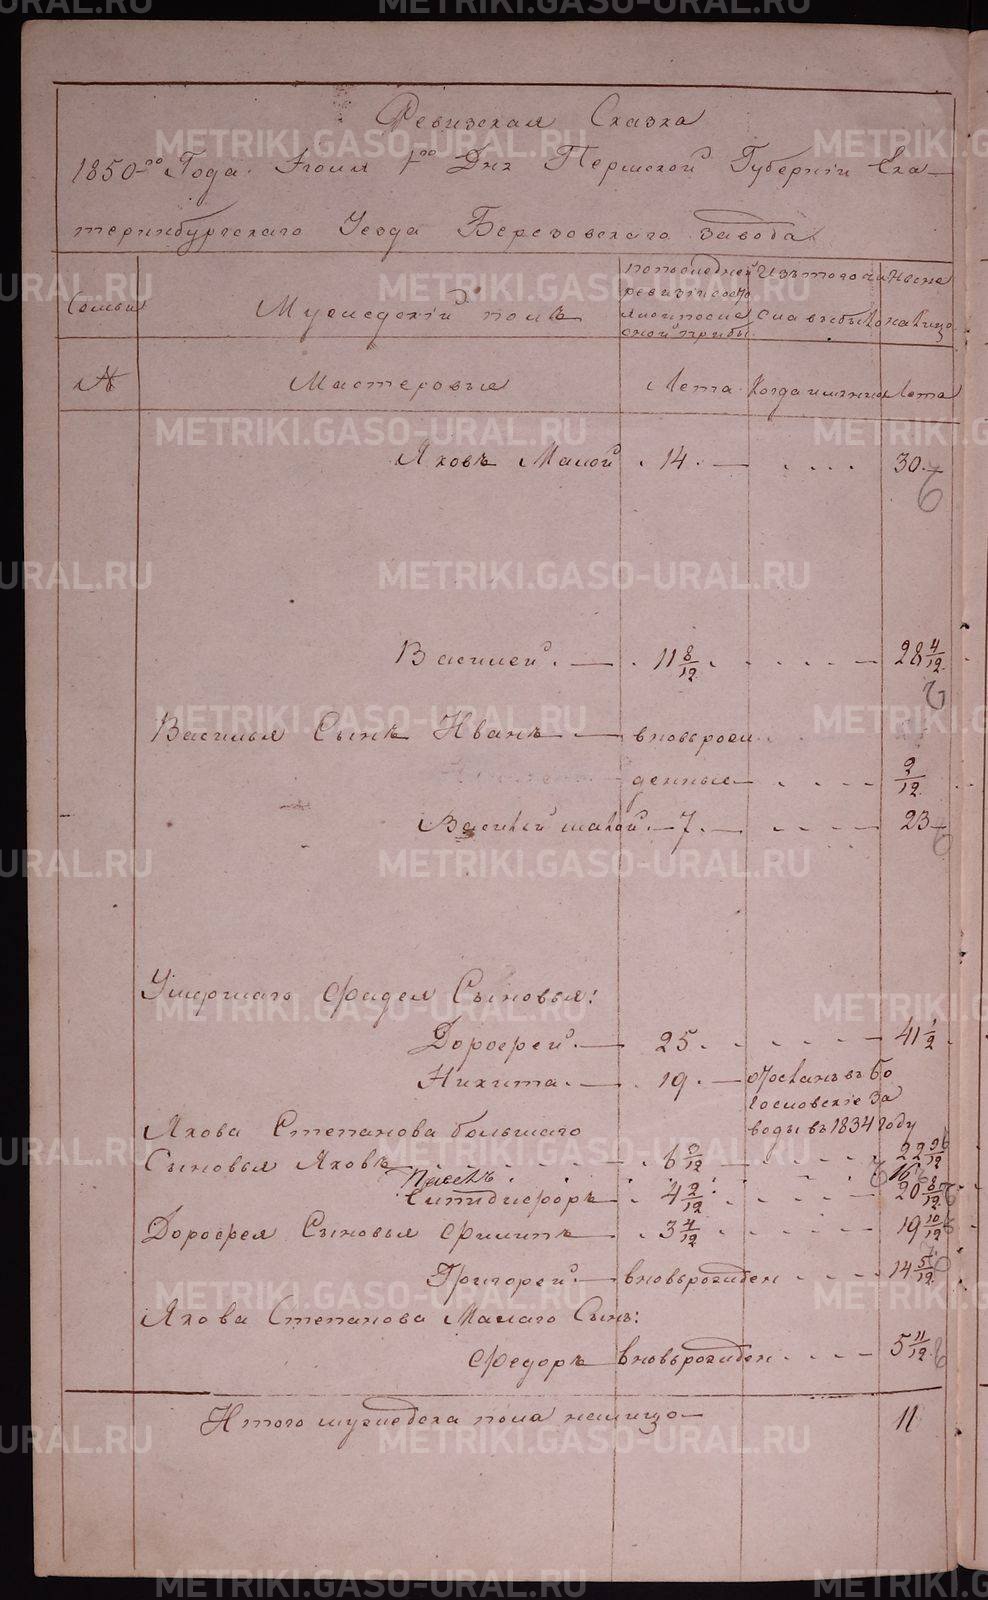 Ревизская Сказка
1850го Года. Іюня 1го Дня Пермской Губерніи Ека-
теринбургскаго Уезда Березовскаго завода
Семьи
Мужескій полъ
попоследней
ревизіи состо
яло и после
оной прибы.
Изъ того чи
сла выбыло
Ныне
налицо
№
Мастеровые
Лета
Когда именно
Лета
Яковъ Малой . 14. — . . . . 30.—
6
Василей. — . 11 8/12 . . . . . — 28 4/12
Василья Сынъ Иванъ — вновьрож
денные — . . . . — 9/12
Василій малой. — 7. — . . . . — 23—
6
Умершаго Фадея Сыновья:
Дорофей. — 25. . . . . — 41 1/2
Никита. — . 19. — Отосланъ въ Бо
гословскіе За
воды въ 1834 году
Якова Степанова большаго
Сыновья Яковъ . . . . . 6 9/12 — . . . . — 22
16
. 4 2/12 . . . . — 20 8/12
Дорофея Сыновья Филипъ — . 3 4/12 . . . . — 19 10/12
Григорей. — вновьрожден . . . . — 14
Якова Степанова Малаго Сынъ:
Федоръ — вновьрожден . . . . — 5 11/12
Итого мужеска пола налицо — 11
METRIKI.GASO-URAL.RU